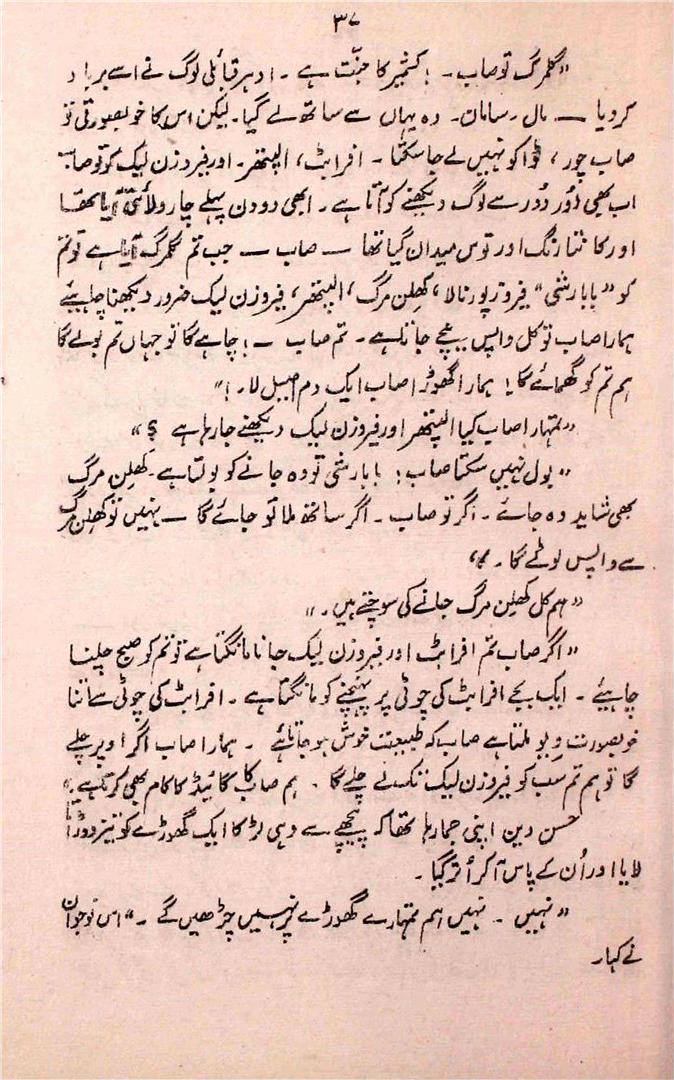 ۳۷
”گلمرگ تو صاب ۔ ! کشمیر کا جنّت ہے ۔ ادہر قبائلی لوگ نے اسے برباد
کر دیا — مال ۔ سامان ۔ وہ یہاں سے ساتھ لے گیا ۔ لیکن اس کا خوبصورتی تو
صاب چور ، ڈاکو نہیں لے جا سکتا ۔ افرابٹ ، الپتھر ۔ اور فیروزن لیک کو تو صاب
اب بھی دُور دُور سے لوگ دیکھنے کو آتا ہے ۔ ابھی دو دن پہلے چار ولائتی آیا تھا
اور کانتار نگ اور توس میدان گیا تھا — صاب — جب تم گلمرگ آیا ہے تو تم
کو ”بابا رشی“ فیروز پور نالا ، کھلن مرگ ، الپتھر ، فیروزن لیک ضرور دیکھنا چاہیئے
ہمارا صاب تو کل واپس نیچے جاتا ہے ۔ تم صاب — ! چاہے گا تو جہاں تم بولے گا
ہم تم کو گھمائے گا ! ہمارا گھوڑا صاب ایک دم اصیل لا ۔ ! “
”تمہارا صاب کیا الپتھر اور فیروزن لیک دیکھنے جا رہا ہے ؟ “
”بول نہیں سکتا صاب ! بابا رشی تو وہ جانے کو بولتا ہے ۔ کھلن مرگ
بھی شاید وہ جائے ۔ اگر تو صاب ۔ اگر ساتھ ملا تو جائے گا — نہیں تو کھلن مرگ
سے واپس لوٹے گا ۔ “
”ہم کل کھلن مرگ جانے کی سوچتے ہیں ۔ “
”اگر صاب تم افرابٹ اور فیروزن لیک جانا مانگتا ہے تو تم کو صبح چلنا
چاہیئے ۔ ایک بجے افرابٹ کی چوٹی پر پہنچنے کو مانگتا ہے ۔ افرابٹ کی چوٹی سے اتنا
خوبصورت ویو ملتا ہے صاب کہ طبیعت خوش ہو جاتا ہے ۔ ہمارا صاب اگر اوپر چلے
گا تو ہم تم سب کو فیروزن لیک تک لے چلے گا ۔ ہم صاب گائیڈ کا کام بھی کرتا ہے ۔“
حسن دین اپنی جما رہا تھا کہ پیچھے سے وہی لڑکا ایک گھوڑے کو تیز دوڑاتا
لایا اور اُن کے پاس آ کر اُتر گیا ۔
”نہیں ۔ نہیں ہم تمہارے گھوڑے پر نہیں چڑھیں گے ۔“ اس نوجوان
نے کہا ۔